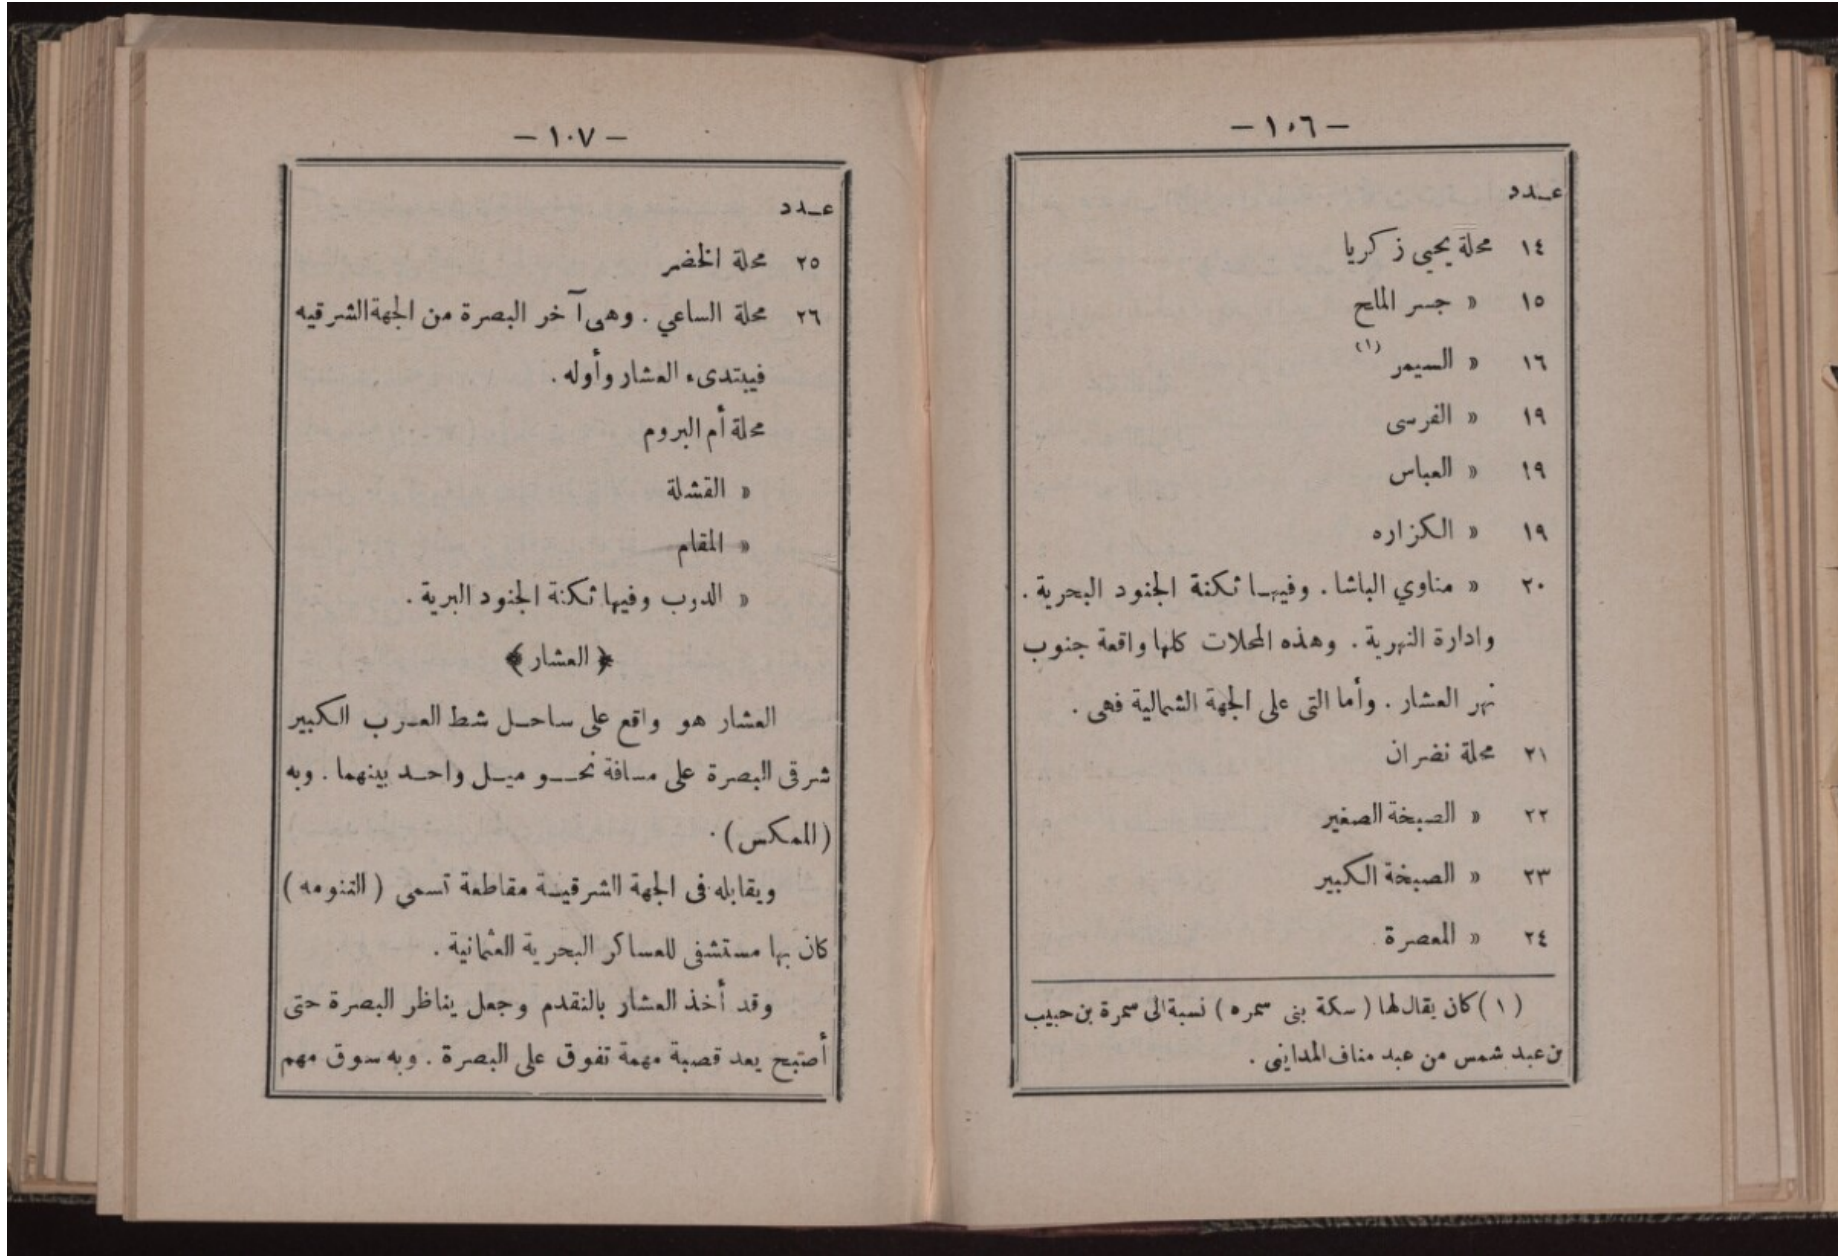 — ١٠٦ —
عـدد
١٤ محلة يحيى زكريا
١٥ « جسر الملح
١٦ « السيمر (١)
١٩ « الفرسى
١٩ « العباس
١٩ « الكزاره
٢٠ « مناوي الباشا . وفيهـا ثكنة الجنود البحرية .
وادارة النهرية . وهذه المحلات كلها واقعة جنوب
نهر العشار . وأما التى على الجهة الشمالية فهى .
٢١ محلة نضران
٢٢ « الصبخة الصغير
٢٣ « الصبخة الكبير
٢٤ « المعصرة
(١) كان يقال لها ( سكة بنى سمره ) نسبة الى سمرة بن حبيب
بن عبد شمس من عبد مناف المداينى .
— ١٠٧ —
عـدد
٢٥ محلة الخضر
٢٦ محلة الساعي . وهى آخر البصرة من الجهة الشرقيه
فيبتدىء العشار وأوله .
محلة أم البروم
« القشلة
« المقام
« الدرب وفيها ثكنة الجنود البرية .
﴿ العشار ﴾
العشار هو واقع على ساحـل شط العـرب الكبير
شرقى البصرة على مسافة نحـو ميـل واحـد بينهما . وبه
(المكس) .
ويقابله فى الجهة الشرقيـة مقاطعة تسمى ( التنومه )
كان بها مستشفى للعساكر البحرية العثمانية .
وقد أخذ العشار بالتقدم وجعل يناظر البصرة حتى
أصبح يعد قصبة مهمة تفوق على البصرة . وبه سوق مهم